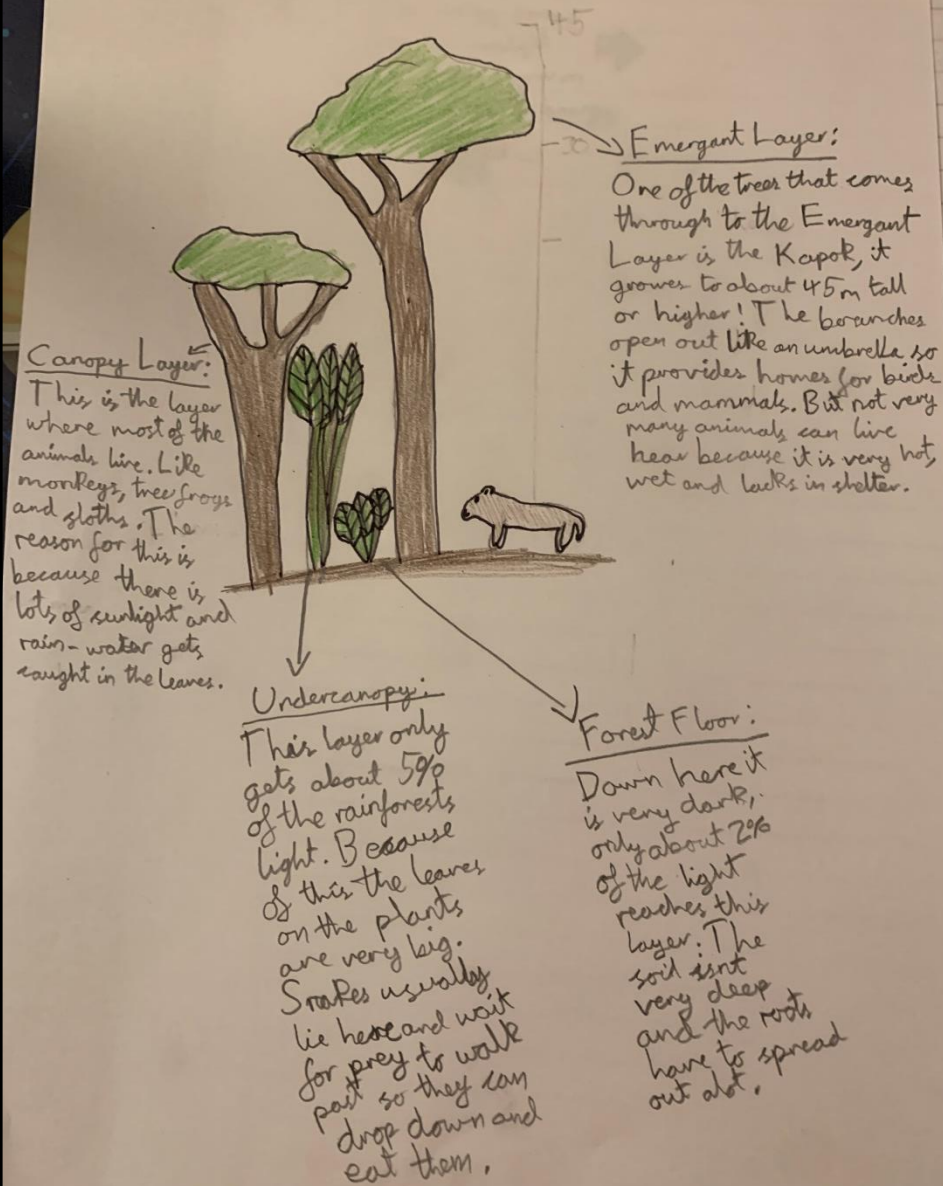 45
30
Emergant Layer:
One of the trees that comes
through to the Emergant
Layer is the Kapok, it
growes to about 45m tall
or higher! The branches
open out like an umbrella so
it provides homes for birds
and mammals. But not very
many animals can live
hear because it is very hot,
wet and lacks in shelter.
Canopy Layer:
This is the layer
where most of the
animals live. Like
monkeys, tree frogs
and sloths. The
reason for this is
because there is
lots of sunlight and
rain-water gets
caught in the leaves.
Undercanopy:
This layer only
gets about 5%
of the rainforests
light. Because
of this the leaves
on the plants
are very big.
Snakes usually
lie here and wait
for prey to walk
past so they can
drop down and
eat them.
Forest Floor:
Down here it
is very dark,
only about 2%
of the light
reaches this
layer. The
soil isnt
very deep
and the roots
have to spread
out alot.